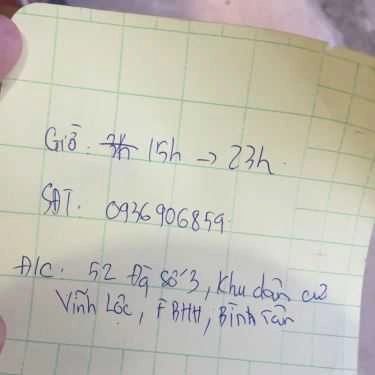 Giờ: 3h 15h → 23h.
SĐT: 0936906859.
Đ/c: 52 Đg Số 3, Khu dân cư
Vĩnh Lộc, F BHH, Bình Tân